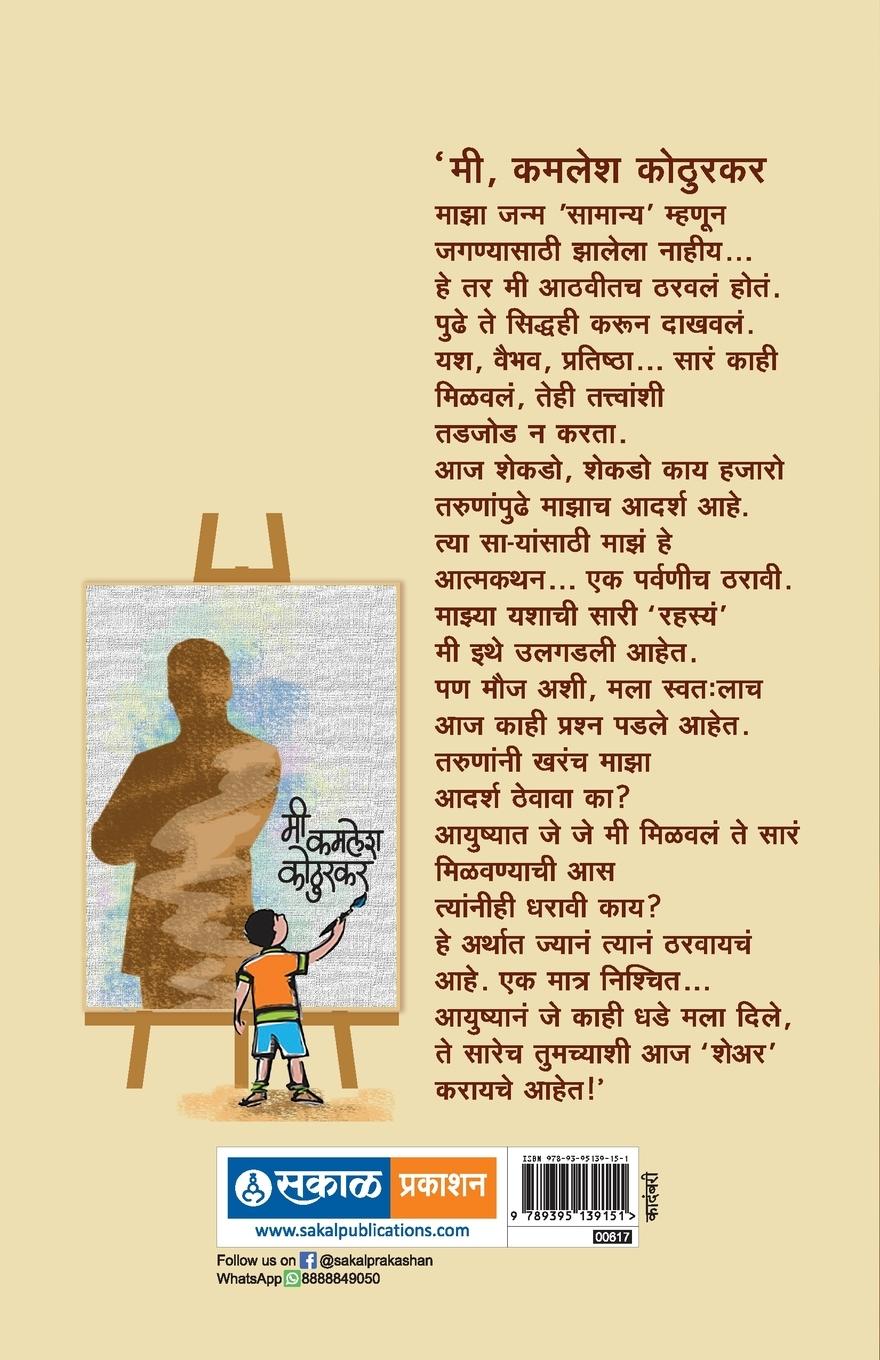 ‘मी, कमलेश कोठुरकर
माझा जन्म ’सामान्य’ म्हणून
जगण्यासाठी झालेला नाहीय...
हे तर मी आठवीतच ठरवलं होतं.
पुढे ते सिद्धही करून दाखवलं.
यश, वैभव, प्रतिष्ठा... सारं काही
मिळवलं, तेही तत्त्वांशी
तडजोड न करता.
आज शेकडो, शेकडो काय हजारो
तरुणांपुढे माझाच आदर्श आहे.
त्या सा-यांसाठी माझं हे
आत्मकथन... एक पर्वणीच ठरावी.
माझ्या यशाची सारी ‘रहस्यं’
मी इथे उलगडली आहेत.
पण मौज अशी, मला स्वतःलाच
आज काही प्रश्न पडले आहेत.
तरुणांनी खरंच माझा
आदर्श ठेवावा का?
आयुष्यात जे जे मी मिळवलं ते सारं
मिळवण्याची आस
त्यांनीही धरावी काय?
हे अर्थात ज्यानं त्यानं ठरवायचं
आहे. एक मात्र निश्चित...
आयुष्यानं जे काही धडे मला दिले,
ते सारेच तुमच्याशी आज ‘शेअर’
करायचे आहेत!’
मी
कमलेश
कोठुरकर
सकाळ प्रकाशन
www.sakalpublications.com
ISBN 978-93-95139-15-1
9 789395 139151>
00617
कादंबरी
Follow us on @sakalprakashan
WhatsApp 8888849050